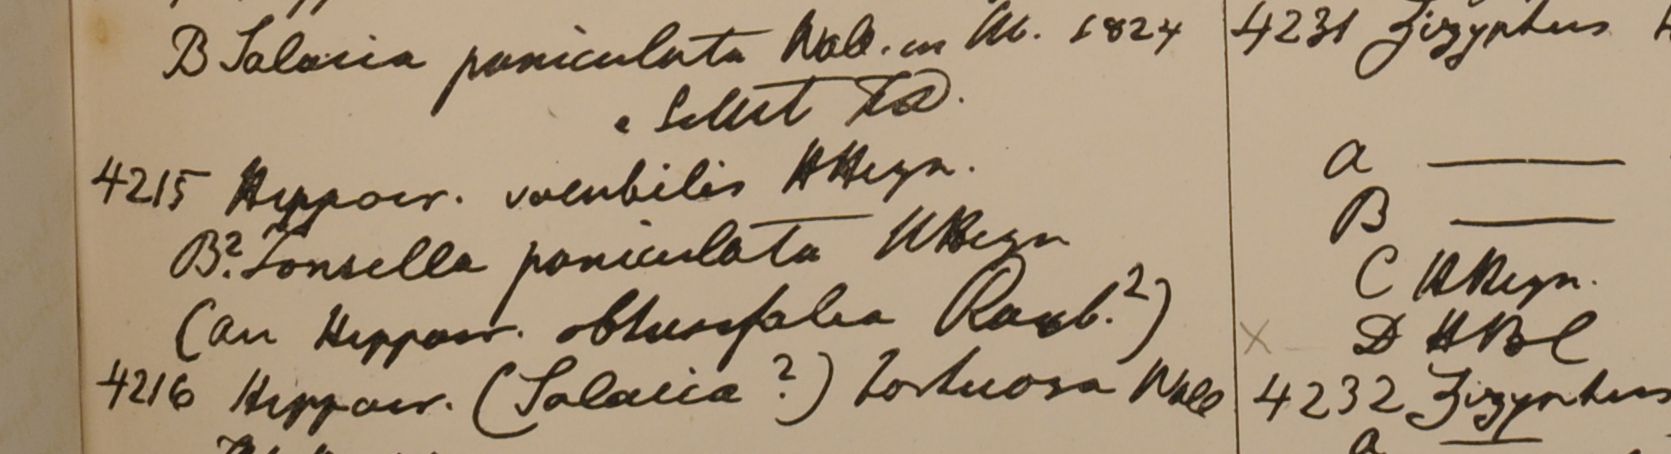 B Salacia paniculata Wall. in ill. 1824
4215 Hippocr. volubilis HHeyn.
B? Tonsella paniculata HHeyn
(an Hippocr. obtusifolia Roxb.?)
4216 Hippocr. (Salacia?) tortuosa Wall
4231 Zizyphus
a
B
C HHeyn.
X D HBC
4232 Zizyphus
a